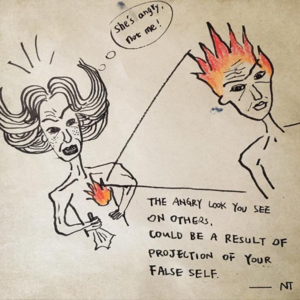 She's angry,
not me!
THE ANGRY LOOK YOU SEE
ON OTHERS,
COULD BE A RESULT OF
PROJECTION OF YOUR
FALSE SELF.
— NT